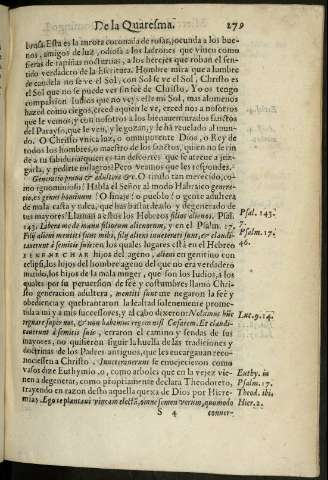 De la Quaresma. 279
brosa. Esta es la aurora coronada de rosas, jocunda a los bue-
nos, amigos de luz, odiosa a los ladrones que viuen como
fieras de rapiñas nocturnas, a los herejes que roban el sen-
tido verdadero de la Escritura. Hombre mira que a lumbre
de candela no se ve el Sol, con Sol se ve el Sol, Christo es
el Sol que no se puede ver sin fee de Christo, Yo os tengo
compassion Iudios que no vey s este mi Sol, mas alomenos
hazed como ciegos, creed aquien le ve, creed nos a nosotros
que le vemos, y con nosotros a los bienauenturados santos del
Parayso, que le ven, y le gozan, y le ha reuelado al mun-
do. O Christo vnica luz, o omnipotente Dios, o Rey de
todos los hombres, o maestro de los santos, quien no se rin-
de a tu sabiduria? quien es tan descortes que se atreue a juz-
garla, y pedirte milagros? Pero veamos que les respondes.
Generatio praua & adultera &c. O titulo tan merecido, co-
mo ignominioso! Habla el Señor al modo Hebraico
es genus hominum. O linaje! o pueblo! o gente adultera
de mala casta y ralea, que has bastardeado y degenerado de
tus mayores! Llaman a estos los Hebreos filios alienos. Psal.
143. Libera me de manu filiorum alienorum, y en el Psalm. 17.
Filij alieni mentiti sunt mihi, filij alieni inueterati sunt, & claudi-
cauerunt à semitis suis: en los quales lugares està en el Hebreo
hijos del ageno, alieni en genitiuo con
eclipsi, los hijos del hombre ageno del que no era verdadero
marido, los hijos de la mala muger, que son los Iudios, à los
quales por su peruersion de fee y costumbres llamo Chris-
to generacion adultera, mentiti sunt me negaron la feè y
obediencia y quebrantaron la lealtad solenemente prometi-
da a mi y a mis successores, y al cabo dixeron: Nolumus hūc
regnare super nos, & non habemus regem nisi Cæsarem. Et claudi-
cauerunt à semitis suis, erraron el camino y sendas de sus
mayores, no quisieron seguir la huella de las tradiciones y
doctrinas de los Padres antiguos, que les encargauan reco-
nociessen a Christo. Inueterauerunt se enuejecieron como
vasos dize Euthymio, o, como arboles que en la vejez vie-
nen a degenerar, como propriamente declara Theodoreto,
trayendo en razon desto aquella quexa de Dios por Hiere-
mias. Ego te plantaui vineam electā, omne semen verum, quomodo
S 4 conuer-
Psal. 143.
7.
Psalm. 17.
46.
Luc. 9. 14.
Euthy. in
Psalm. 17.
Theod. ibi.
Hier. 2.